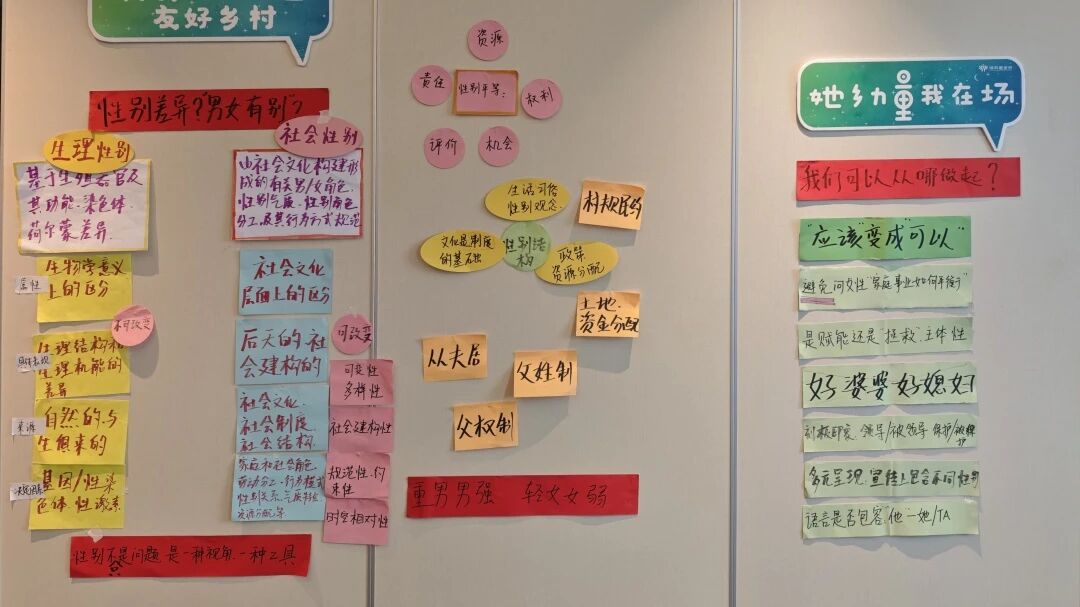 友好乡村
性别差异？"男女有别"？
生理性别
基于生殖器官及
其功能、染色体、
荷尔蒙差异.
属性
生物学意义
上的区分
不可改变
生理结构和
生理机能的
差异
来源
自然的与
生俱来的
基因/性染
色体 性激素
社会性别
由社会文化构建形
成的有关男/女角色、
性别气质、性别角色
分工及其行为方式规范
社会文化
层面上的区分
后天的、社
会建构的
社会文化、
社会制度、
社会结构.
家庭和社会角色、
劳动分工、行为模式
性别关系、气质特征
资源分配等
可改变
可变性
多样性
社会建构性
规范性、约
束性
时空相对性
性别不是问题 是一种视角、一种工具
资源
责任
性别平等：
权利
评价
机会
生活习俗
性别观念.
村规民约
文化是制度
的基础
性别结
构
政策
资源分配
土地、
资金分配
从夫居
父姓制
父权制
重男男强 轻女女弱
她乡力量我在场
我们可以从哪做起？
"应该"变成"可以"
避免问女性"家庭事业如何平衡？"
是赋能还是"拯救".主体性
好婆婆 好媳妇
刻板印象、领导/被领导 保护/被保
护
多元呈现、宣传上包含不同性别
语言是否包容."他"—她/TA